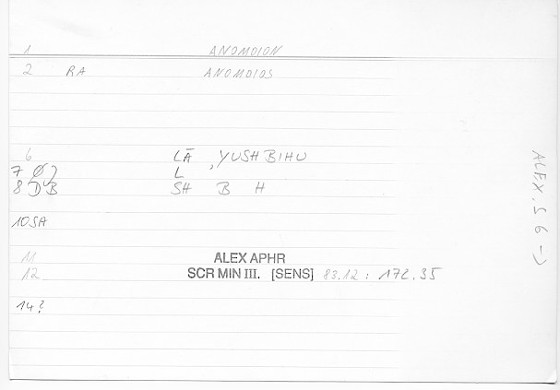 1 ANOMOION
2 RA ANOMOIOS
6 LĀ YUSHBIHU
7 Ø) L
8 DB SH B H
10 SA
11 ALEX APHR
12 SCR MIN III. [SENS] 83.12 : 172.35
14 ?
ALEX. S 6 →